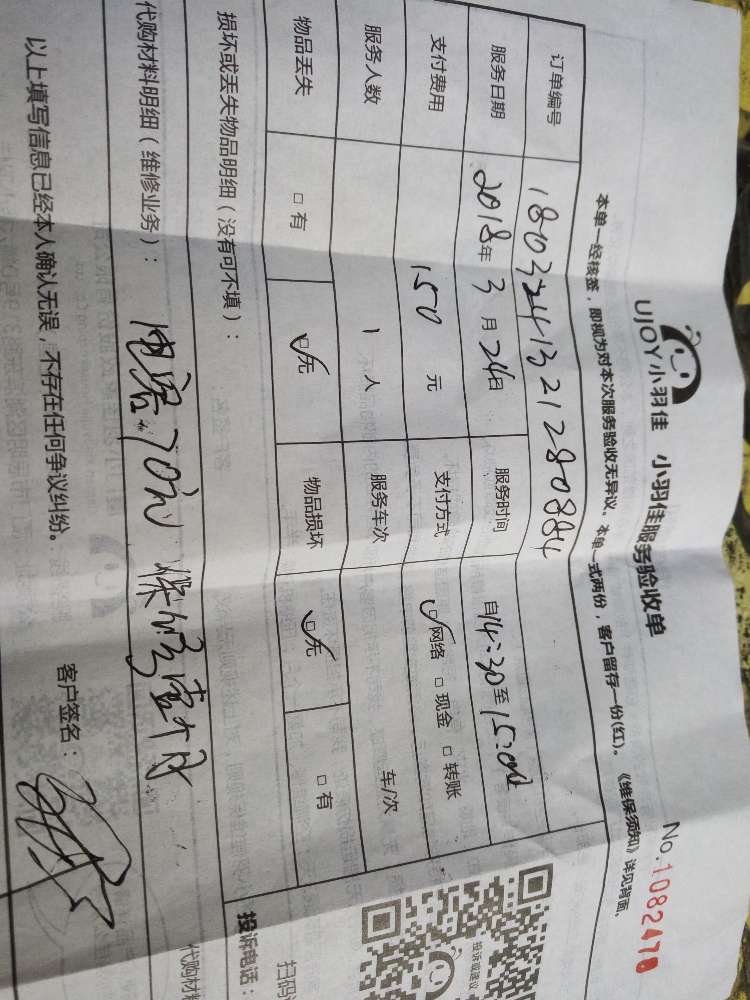 UJOY小羽佳 小羽佳服务验收单
No.1082478
本单一经核签，即视为对本次服务验收无异议、本单一式两份，客户留存一份(红)。《维保须知》详见背面。
订单编号 180324132128 0884
服务日期 2018年 3月24日 服务时间 自14:30至15:00
支付费用 150元 支付方式 ☑网络 □现金 □转账
服务人数 1人 服务车次 车/次
物品丢失 □有 ☑无 物品损坏 ☑无 □有
损坏或丢失物品明细（没有可不填）：
代购材料明细（维修业务）： 电容70元 保修壹十月
以上填写信息已经本人确认无误，不存在任何争议纠纷。
客户签名：
投诉或建议
扫码
投诉电话：
代购材料